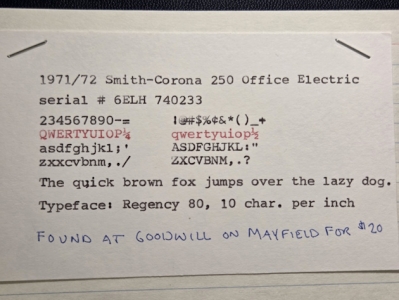 1971/72 Smith-Corona 250 Office Electric
serial # 6ELH 740233
234567890-= !@#$%¢&*()_+
QWERTYUIOP¼ qwertyuiop½
asdfghjkl;' ASDFGHJKL:"
zxxcvbnm,./ ZXCVBNM,.?
The quick brown fox jumps over the lazy dog.
Typeface: Regency 80, 10 char. per inch
FOUND AT GOODWILL ON MAYFIELD FOR $20